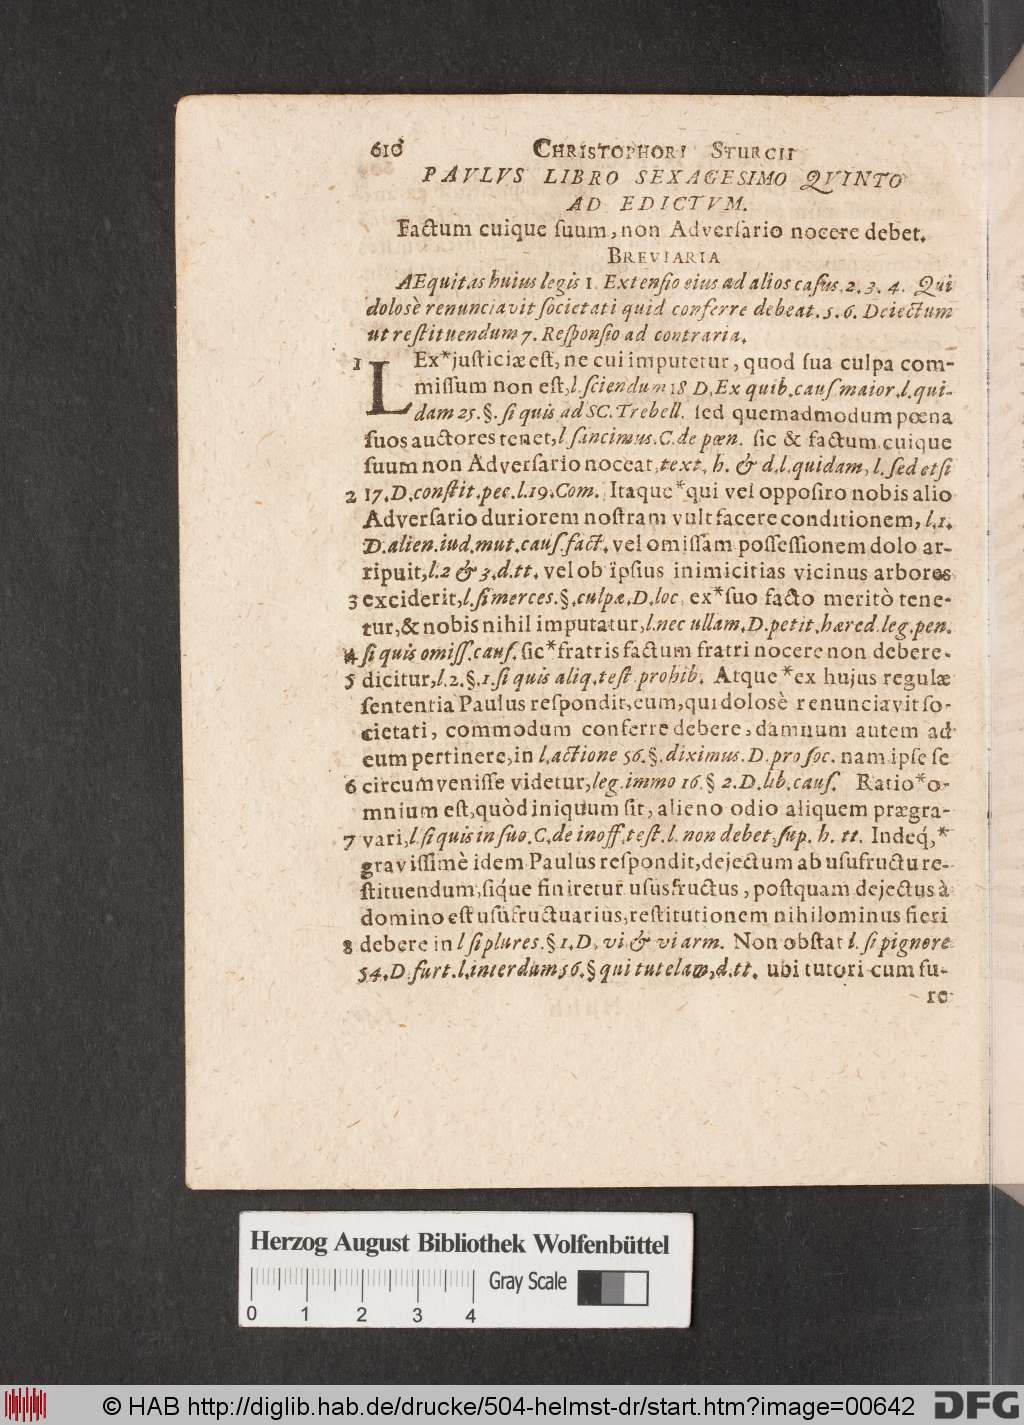 610 CHRISTOPHORI STURCII
PAVLVS LIBRO SEXAGESIMO QVINTO
AD EDICTVM.
Factum cuique ſuum, non Adverſario nocere debet.
BREVIARIA
AEquitas huius legis 1. Extenſio eius ad alios caſus. 2. 3. 4. Qui
dolosè renunciavit ſocietati quid conferre debeat. 5. 6. Deiectum
ut reſtituendum 7. Reſponſio ad contraria.
1 LEx*juſticiæ eſt, ne cui imputetur, quod ſua culpa com-
miſſum non eſt, l. ſciendum 18 D. Ex quib. cauſ. maior. l. qui-
dam 25. §. ſi quis ad SC. Trebell. ſed quemadmodum pœna
ſuos auctores tenet, l. ſancimus. C. de pœn. ſic & factum cuique
ſuum non Adverſario noceat, text. h. & d. l. quidam, l. ſed et ſi
2 17. D. conſtit. pec. l. 19. Com. Itaque*qui vel oppoſiro nobis alio
Adverſario duriorem noſtram vult facere conditionem, l. 1.
D. alien. iud. mut. cauſ. fact. vel omiſſam poſſeſſionem dolo ar-
ripuit, l. 2 & 3. d. tt. vel ob ipſius inimicitias vicinus arbores
3 exciderit, l. ſi merces. §. culpæ. D. loc. ex*ſuo facto meritò tene-
tur, & nobis nihil imputatur, l. nec ullam. D. petit. hæred. leg. pen.
4 ſi quis omiſſ. cauſ. ſic*fratris factum fratri nocere non debere.
5 dicitur, l. 2. §. 1. ſi quis aliq. teſt. prohib. Atque*ex hujus regulæ
ſententia Paulus reſpondit, eum, qui dolosè renunciavit ſo-
cietati, commodum conferre debere, damnum autem ad
eum pertinere, in l. actione 56. §. diximus. D. pro ſoc. nam ipſe ſe
6 circumveniſſe videtur, leg. immo 16. § 2. D. lib. cauſ. Ratio*o-
mnium eſt, quòd iniquum ſit, alieno odio aliquem prægra-
7 vari, l. ſi quis in ſuo. C. de inoff. teſt. l. non debet, ſup. h. tt. Indeq́,*
graviſſimè idem Paulus reſpondit, dejectum ab uſufructu re-
ſtituendum, ſiq́ue finiretur uſusfructus, poſtquam dejectus à
domino eſt uſufructuarius, reſtitutionem nihilominus fieri
8 debere in l ſi plures. § 1. D. vi & vi arm. Non obſtat l. ſi pignore
54. D. furt. l. interdum 56. § qui tutelam, d. tt. ubi tutori cum fu-
re
Herzog August Bibliothek Wolfenbüttel
Gray Scale
0 1 2 3 4
© HAB http://diglib.hab.de/drucke/504-helmst-dr/start.htm?image=00642 DFG